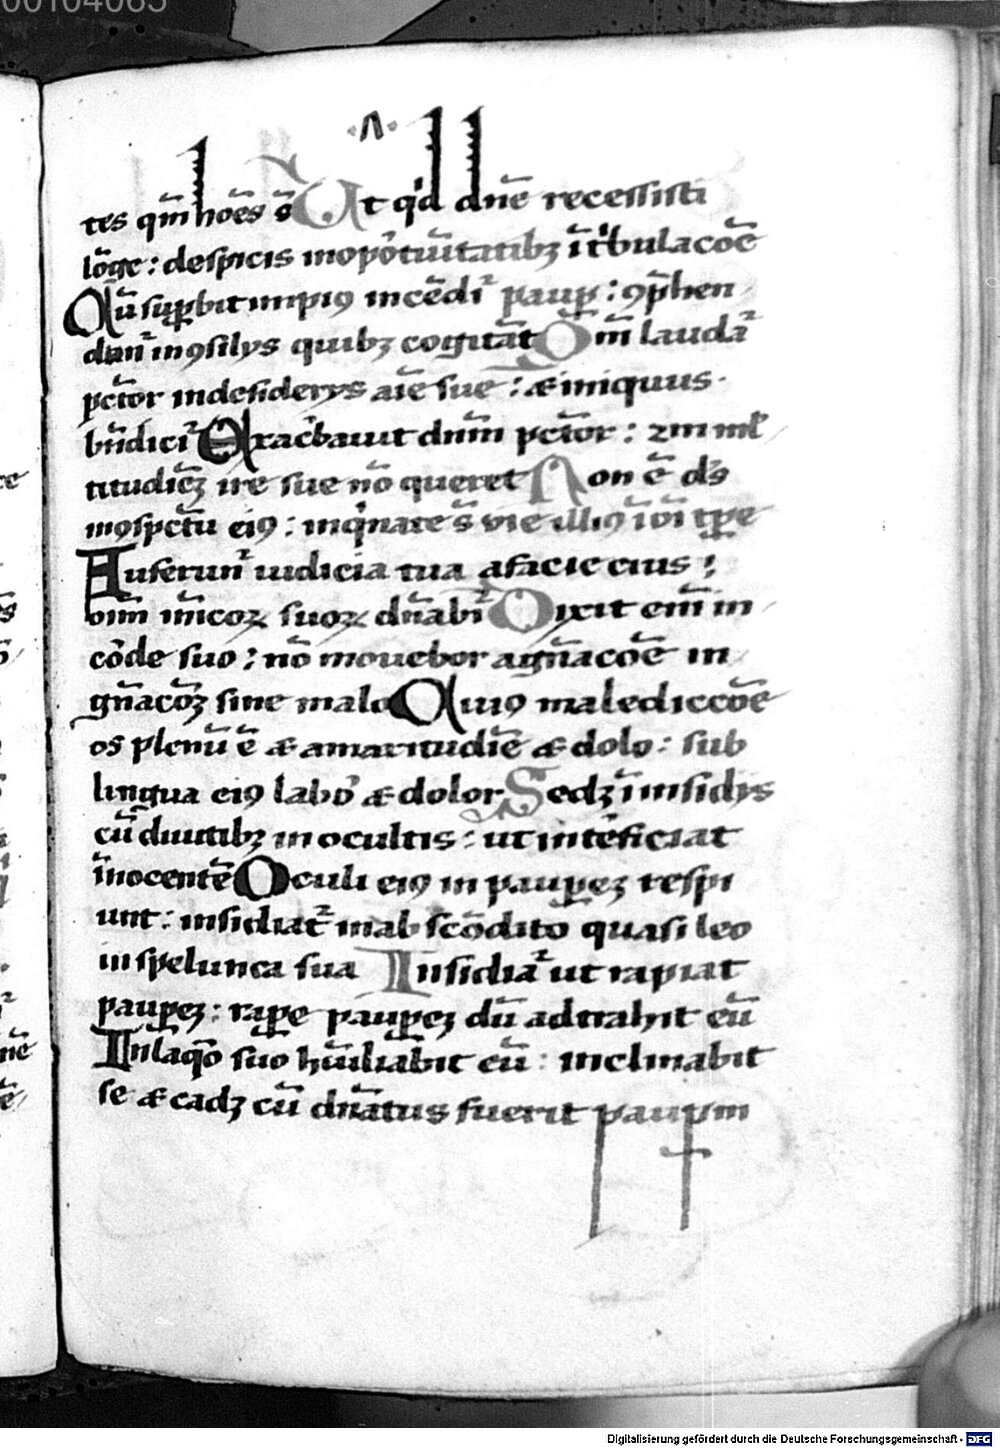 00104065
·Λ·
tes qm̄ hoēs s̄ Ut qͥd dnē recessisti
lōge : despicis inoportūitatibꝫ ī tͥbulacōe
Dū suꝑbit impiꝯ incēdiᷣ pauꝑ : ꝯp̄hen
dunᷣ in ꝯsilys quibꝫ cogitāt Qm̄ laudaᷣ
pctōr in desiderys aīe sue : & iniquus
bn̄diciᷣ Exac̄bauit dnm̄ pctōr : ẜm ml̄
titudiēꝫ ire sue nō queret Non ē ds̄
in ꝯspctū eiꝯ : inqͥnate s̄ vie illiꝯ ī oī tp̄e
Auferunᷣ iudicia tua a facie eius :
oīm īmicoꝝ suoꝝ dn̄abiᷣ Dixit em̄ in
cōde suo : nō mouebor a gn̄acōe in
gn̄acōꝫ sine malo Cuiꝯ malediccōe
os plenū ē & amaritudīe & dolo : sub
lingua eiꝯ labō & dolor Sedꝫ ī insidys
cū diuitibꝫ in ocultis : ut intēficiat
īnocentē Oculi eiꝯ in pauꝑeꝫ respi
unt : insidiatᷣ in abscōdito quasi leo
in spelunca sua Insidiaᷣ ut rapiat
pauꝑeꝫ : raꝑe pauꝑeꝫ dū adtrahit eū
In laqͦ suo hūiliabit eū : inclinabit
se & cadꝫ cū dn̄atus fuerit pauꝑm
Digitalisierung gefördert durch die Deutsche Forschungsgemeinschaft - DFG